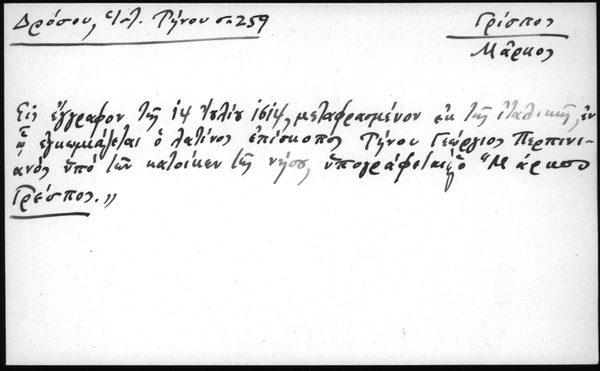 Δρόσου, Ἱστ. Τήνου σ. 259
Γρίσπος
Μᾶρκος
Εἰς ἔγγραφον τῆς 14 Ἰουλίου 1614, μεταφρασμένον ἐκ τῆς ἰταλικῆς, ἐν
ᾧ ἐγκωμιάζεται ὁ λατῖνος ἐπίσκοπος Τήνου Γεώργιος Περπινι-
ανός ὑπό τῶν κατοίκων τῆς νήσου, ὑπογράφεται ὁ "Μάρκος
Γρέσπος.„